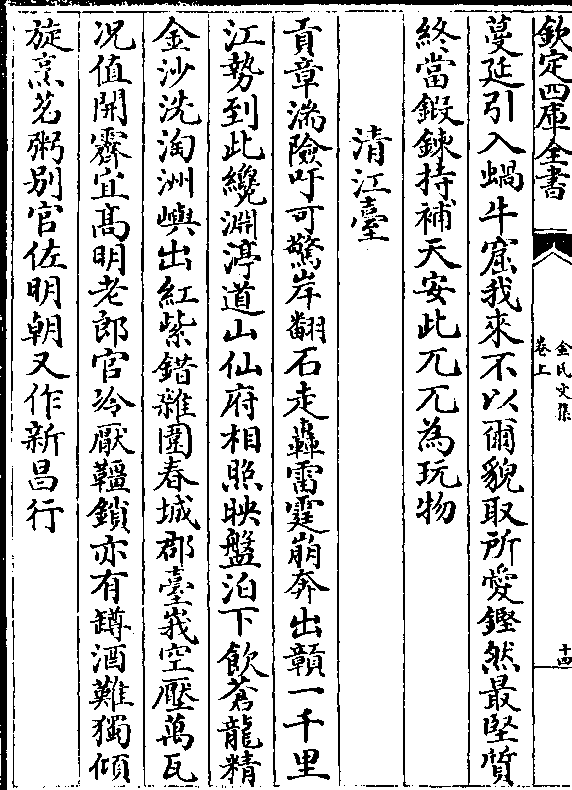 欽定四庫全書
金氏文集
卷上
十四
蔓延引入蝸牛窟我來不以爾貌取所愛鏗然最堅質
終當鍛鍊持補天安此兀兀為玩物
清江臺
貢章湍險吁可驚岸翻石走轟雷霆崩奔出贑一千里
江勢到此纔淵渟道山仙府相照映盤泊下飲蒼龍精
金沙洗淘洲嶼出紅紫錯雜圍春城郡臺峩空壓萬瓦
况值開霽宜高明老郎官冷厭韁鎖亦有罇酒難獨傾
旋烹茗粥別官佐明朝又作新昌行